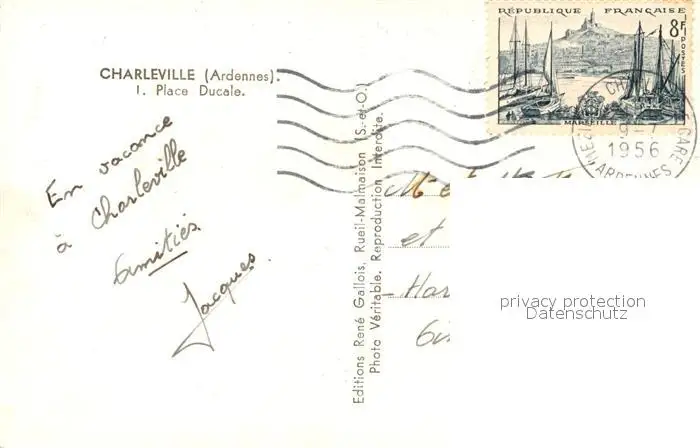 CHARLEVILLE (Ardennes).
1. Place Ducale.
En vacance
à Charleville
Amitiés
Jacques.
Editions René Gallois, Rueil-Malmaison (S.-et-O.)
Photo Véritable. Reproduction Interdite.
RÉPUBLIQUE FRANÇAISE
8F
POSTES
MARSEILLE
GARE
1956
ARDENNES
et
privacy protection
Datenschutz